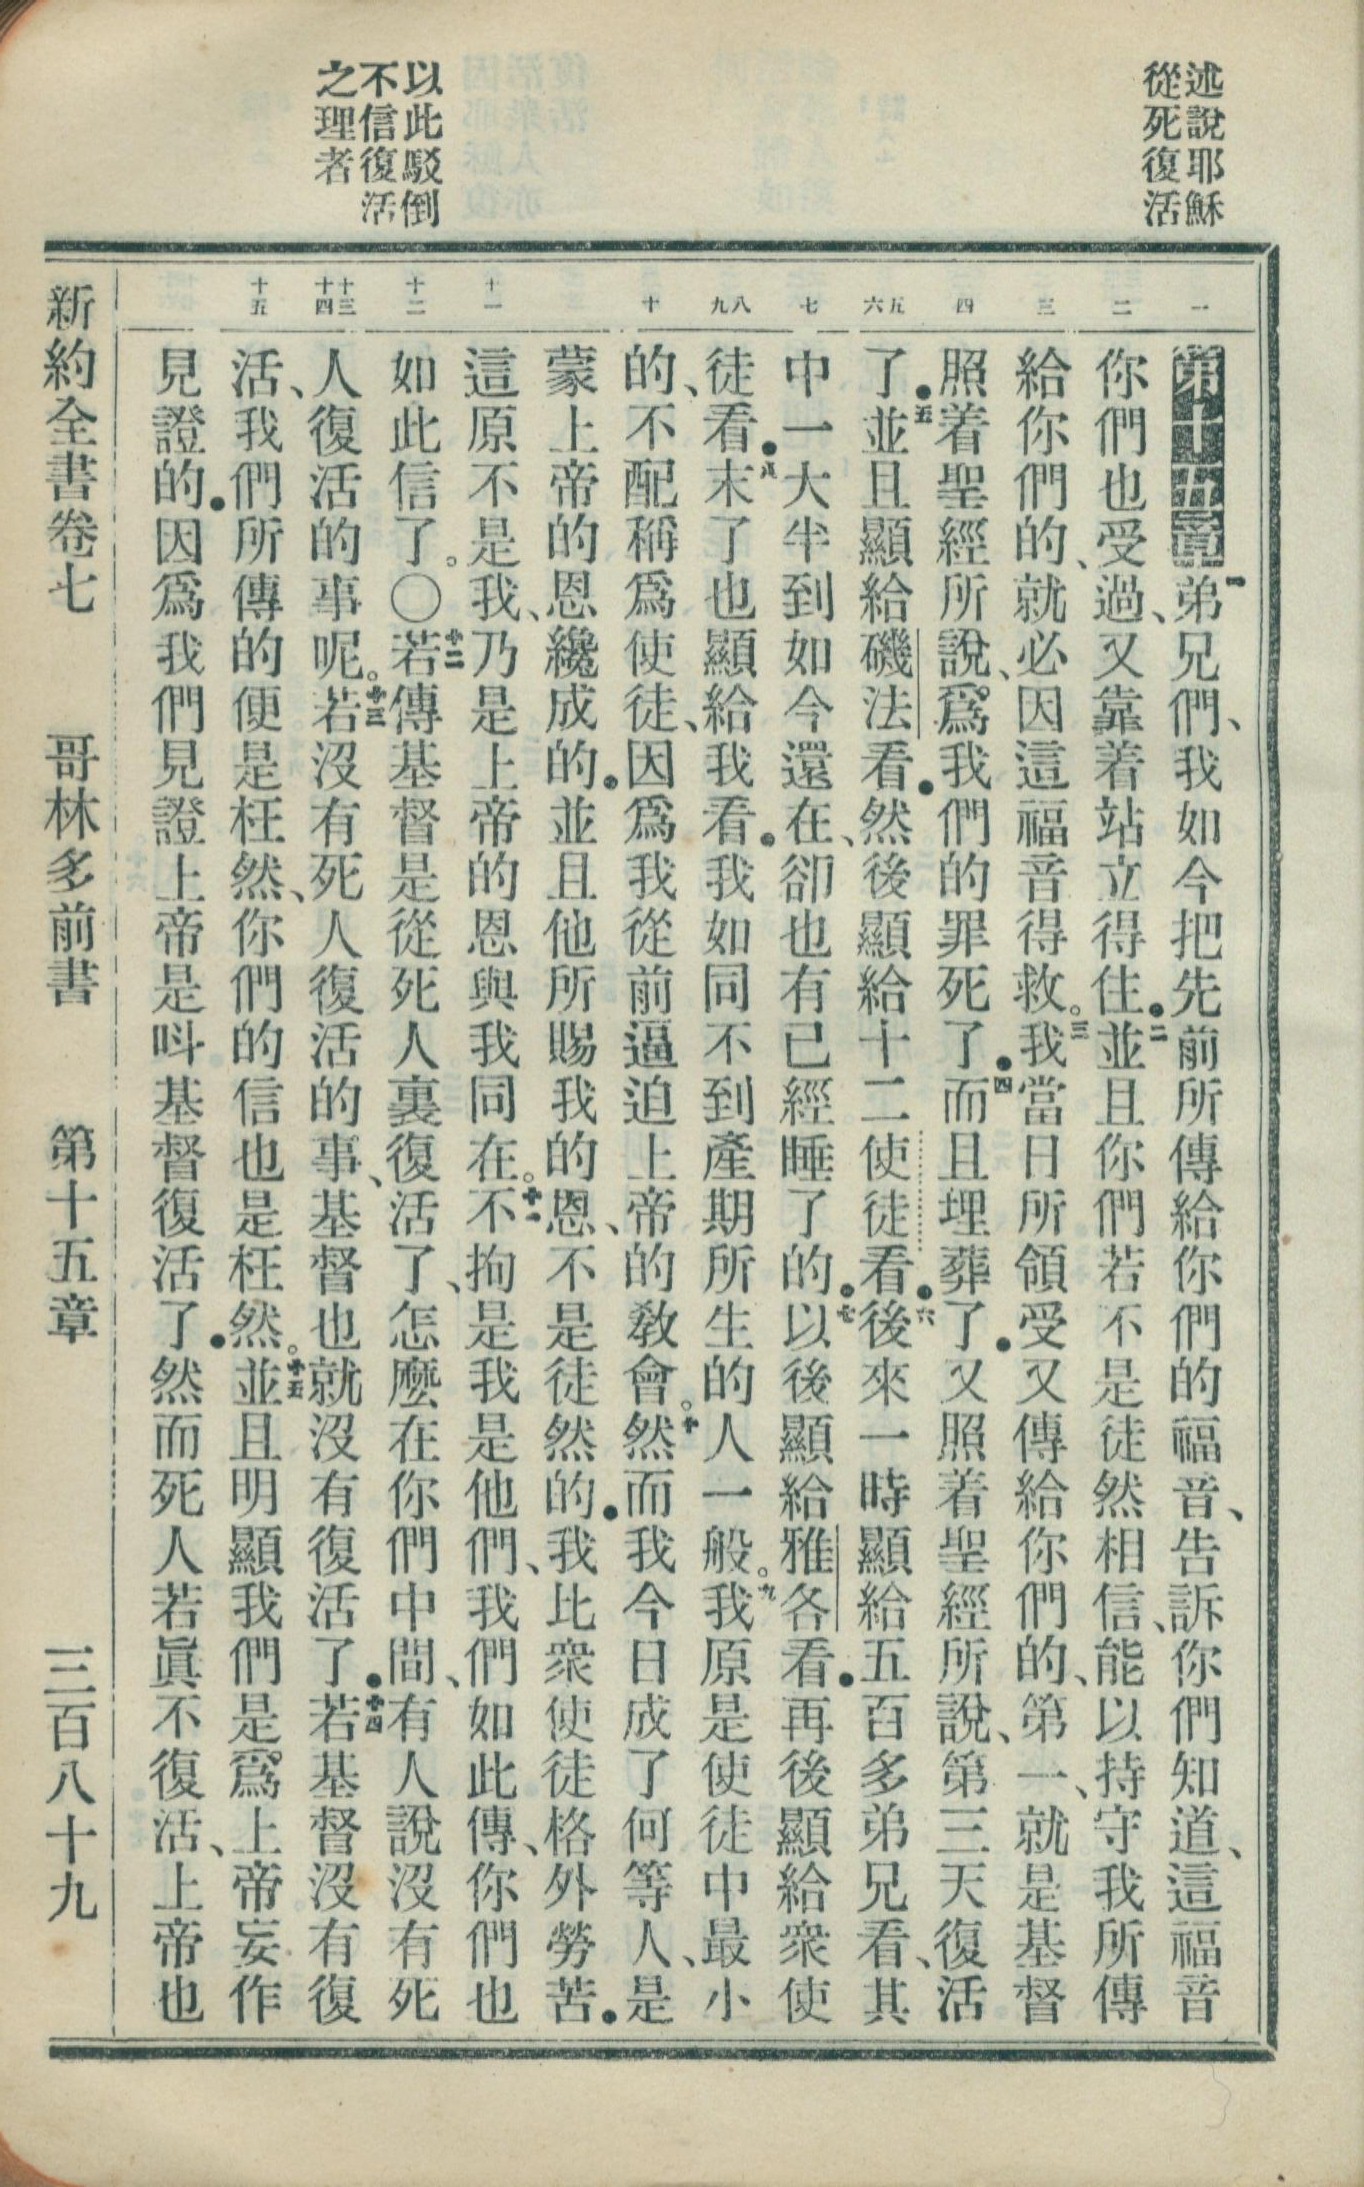 述說耶穌
從死復活
以此駁倒
不信復活
之理者
一
二
三
四
五
六
七
八
九
十
十一
十二
十三
十四
十五
第十五章一弟兄們、我如今把先前所傳給你們的福音、告訴你們知道、這福音
你們也受過、又靠着站立得住●二並且你們若不是徒然相信、能以持守我所傳
給你們的、就必因這福音得救。三我當日所領受又傳給你們的、第一、就是基督
照着聖經所說、爲我們的罪死了●四而且埋葬了●又照着聖經所說、第三天復活
了●五並且顯給磯法看●然後顯給十二使徒看●六後來一時顯給五百多弟兄看、其
中一大半到如今還在、卻也有已經睡了的●七以後顯給雅各看●再後顯給衆使
徒看●八末了也顯給我看●我如同不到產期所生的人一般。九我原是使徒中最小
的、不配稱爲使徒、因爲我從前逼迫上帝的教會。十然而我今日成了何等人、是
蒙上帝的恩纔成的●並且他所賜我的恩、不是徒然的●我比衆使徒格外勞苦●
這原不是我、乃是上帝的恩與我同在。十一不拘是我是他們、我們如此傳、你們也
如此信了。〇十二若傳基督是從死人裏復活了、怎麼在你們中間、有人說沒有死
人復活的事呢。十三若沒有死人復活的事、基督也就沒有復活了●十四若基督沒有復
活、我們所傳的便是枉然、你們的信也是枉然。十五並且明顯我們是爲上帝妄作
見證的●因爲我們見證上帝是呌基督復活了●然而死人若眞不復活、上帝也
新約全書卷七 哥林多前書 第十五章 三百八十九